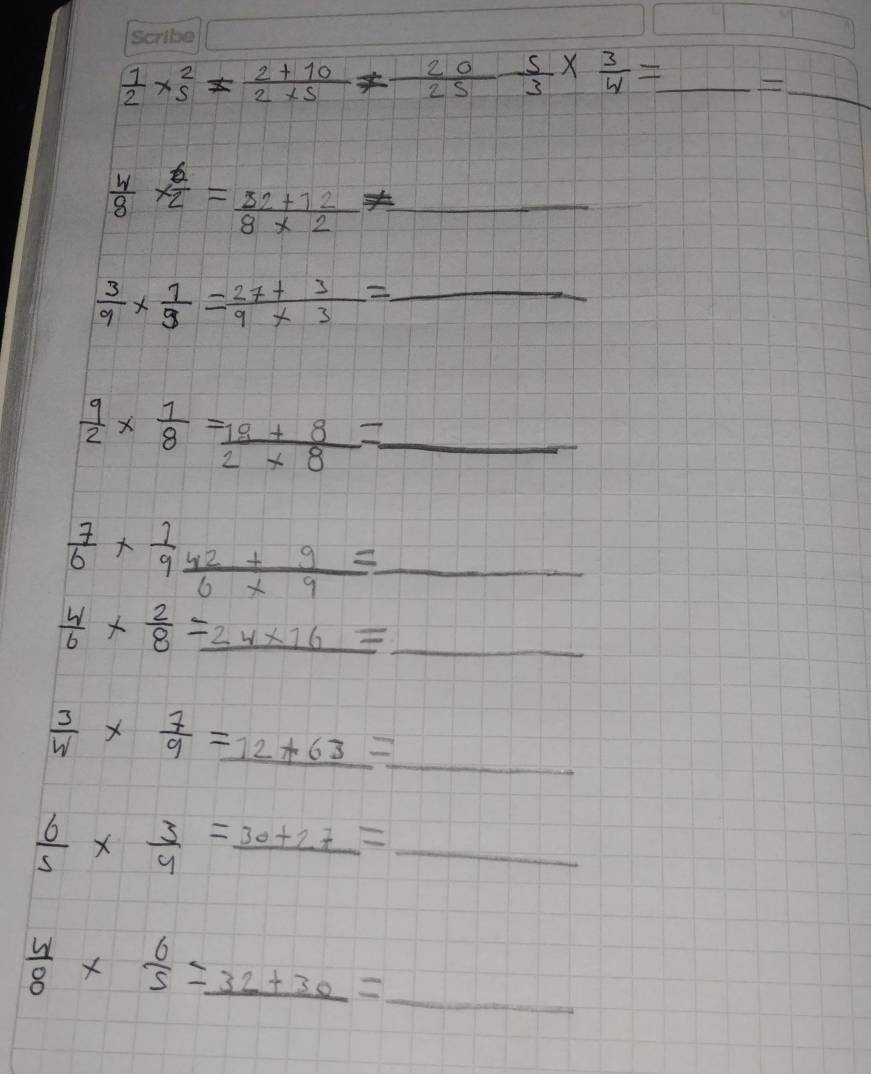 Scribe
1/2 × 2/5 ≠ 2 + 10 / 2 × 5 ≠ 20 / 25 5/3 × 3/4 = ____ = ____
4/8 × 6/2 = 32 + 12 / 8 × 2 ≠ ____
3/9 × 1/3 = 27 + 3 / 9 × 3 = ____
9/2 × 1/8 = 18 + 8 / 2 × 8 = ____
7/6 + 1/9 42 + 9 / 6 × 9 = ____
4/6 + 2/8 = 24 × 16 = ____
3/4 × 7/9 = 12 + 63 = ____
6/5 × 3/9 = 30 + 27 = ____
4/8 × 6/5 = 32 + 30 = ____